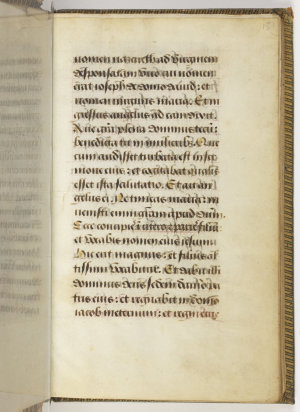 nomen nazareth ad virginem
desponsatam viro cui nomen
erat ioseph de domo dauid: et
nomen virginis maria. Et in
gressus angelus ad eam dixit.
Aue gratia plena dominus tecū:
benedicta tu in mulieribꝰ. Que
cum audisset turbata est in ser
mone eius: et cogitabat qualis
esset ista salutatio. Et ait an
gelus ei. Ne timeas maria: in
uenisti enim gratiam apud deum.
Ecce concipies in utero et paries filiū
et vocabis nomen eius iesum.
Hic erit magnus: et filius al
tissimi vocabitur. Et dabit illi
dominus deus sedem dauid pa
tris eius: et regnabit in domo
iacob in eternum: et regni eius